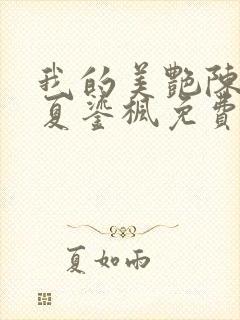 我的美艷陳
夏鎏楓免費
夏如雨